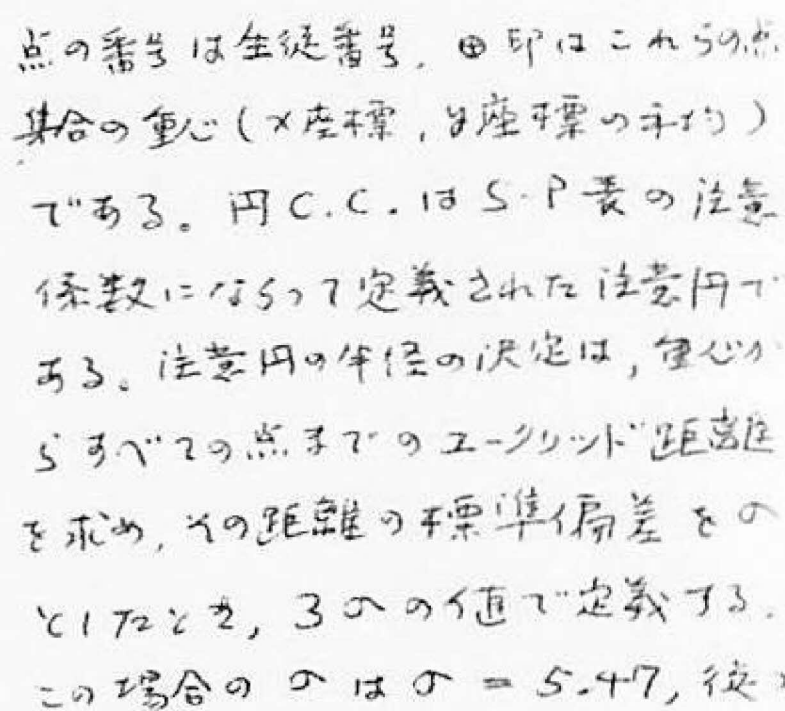 点の番号は生徒番号，⊞印はこれらの点
集合の重心（x座標，y座標の平均）
である。円C.C.はS-P表の注意
係数にならって定義された注意円で
ある。注意円の半径の決定は，重心か
らすべての点までのユークリッド距離
を求め，その距離の標準偏差をσ
としたとき，3σの値で定義する．
この場合のσはσ = 5.47，従